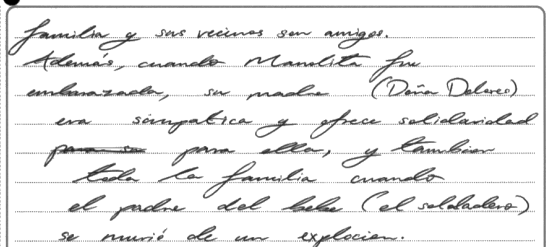 familia y sus vecinos son amigos.
Además, cuando Manolita fue
embarazada, su madre (Doña Dolores)
era simpatica y ofrece solidaridad
para ella, y tambien
toda la familia cuando
el padre del bebe (el soldadero)
se murió de un explocion.